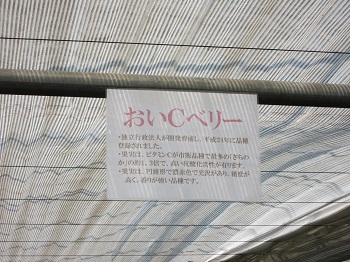 おいCベリー
・独立行政法人が開発育成し、平成24年に品種
登録されました。
・果実は、ビタミンCが市販品種で最多の「さちの
か」の約1.3倍で、高い抗酸化活性が有ります。
・果実は、円錐形で濃赤色で光沢があり、糖度が
高く、香りが強い品種です。